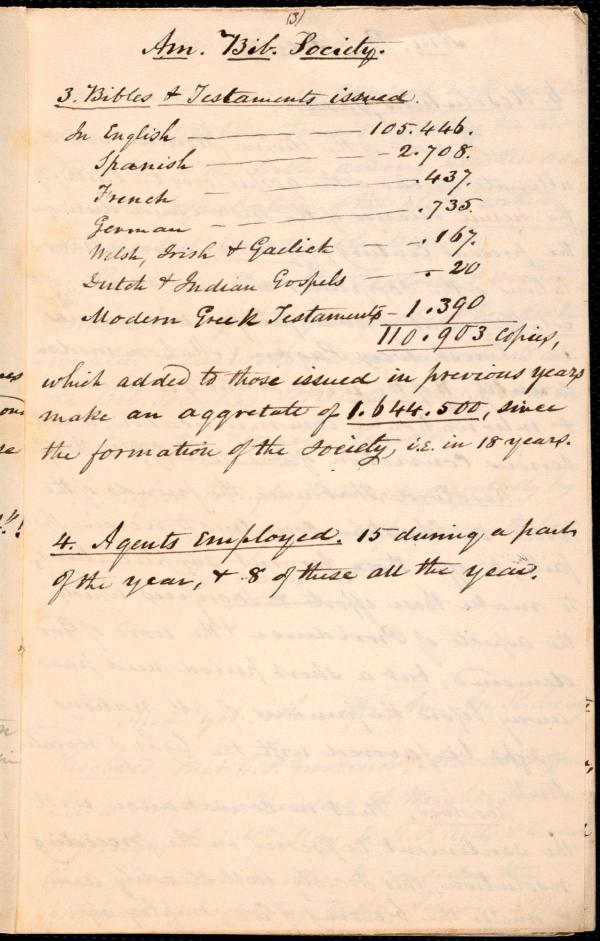 (3)
Am. Bib. Society.
3. Bibles & Testaments issued.
In English — — — — 105.446.
Spanish — — — — 2.708.
French — — — — .437.
German — — — — .735.
Welsh, Irish & Gaelick — — .167.
Dutch & Indian Gospels — — . 20
Modern Greek Testaments — 1.390
110.903 copies,
which added to those issued in previous years
make an aggretate of 1.644.500, since
the formation of the Society, i.e. in 18 years.
4. Agents employed. 15 during a part
of the year, & 8 of these all the year.